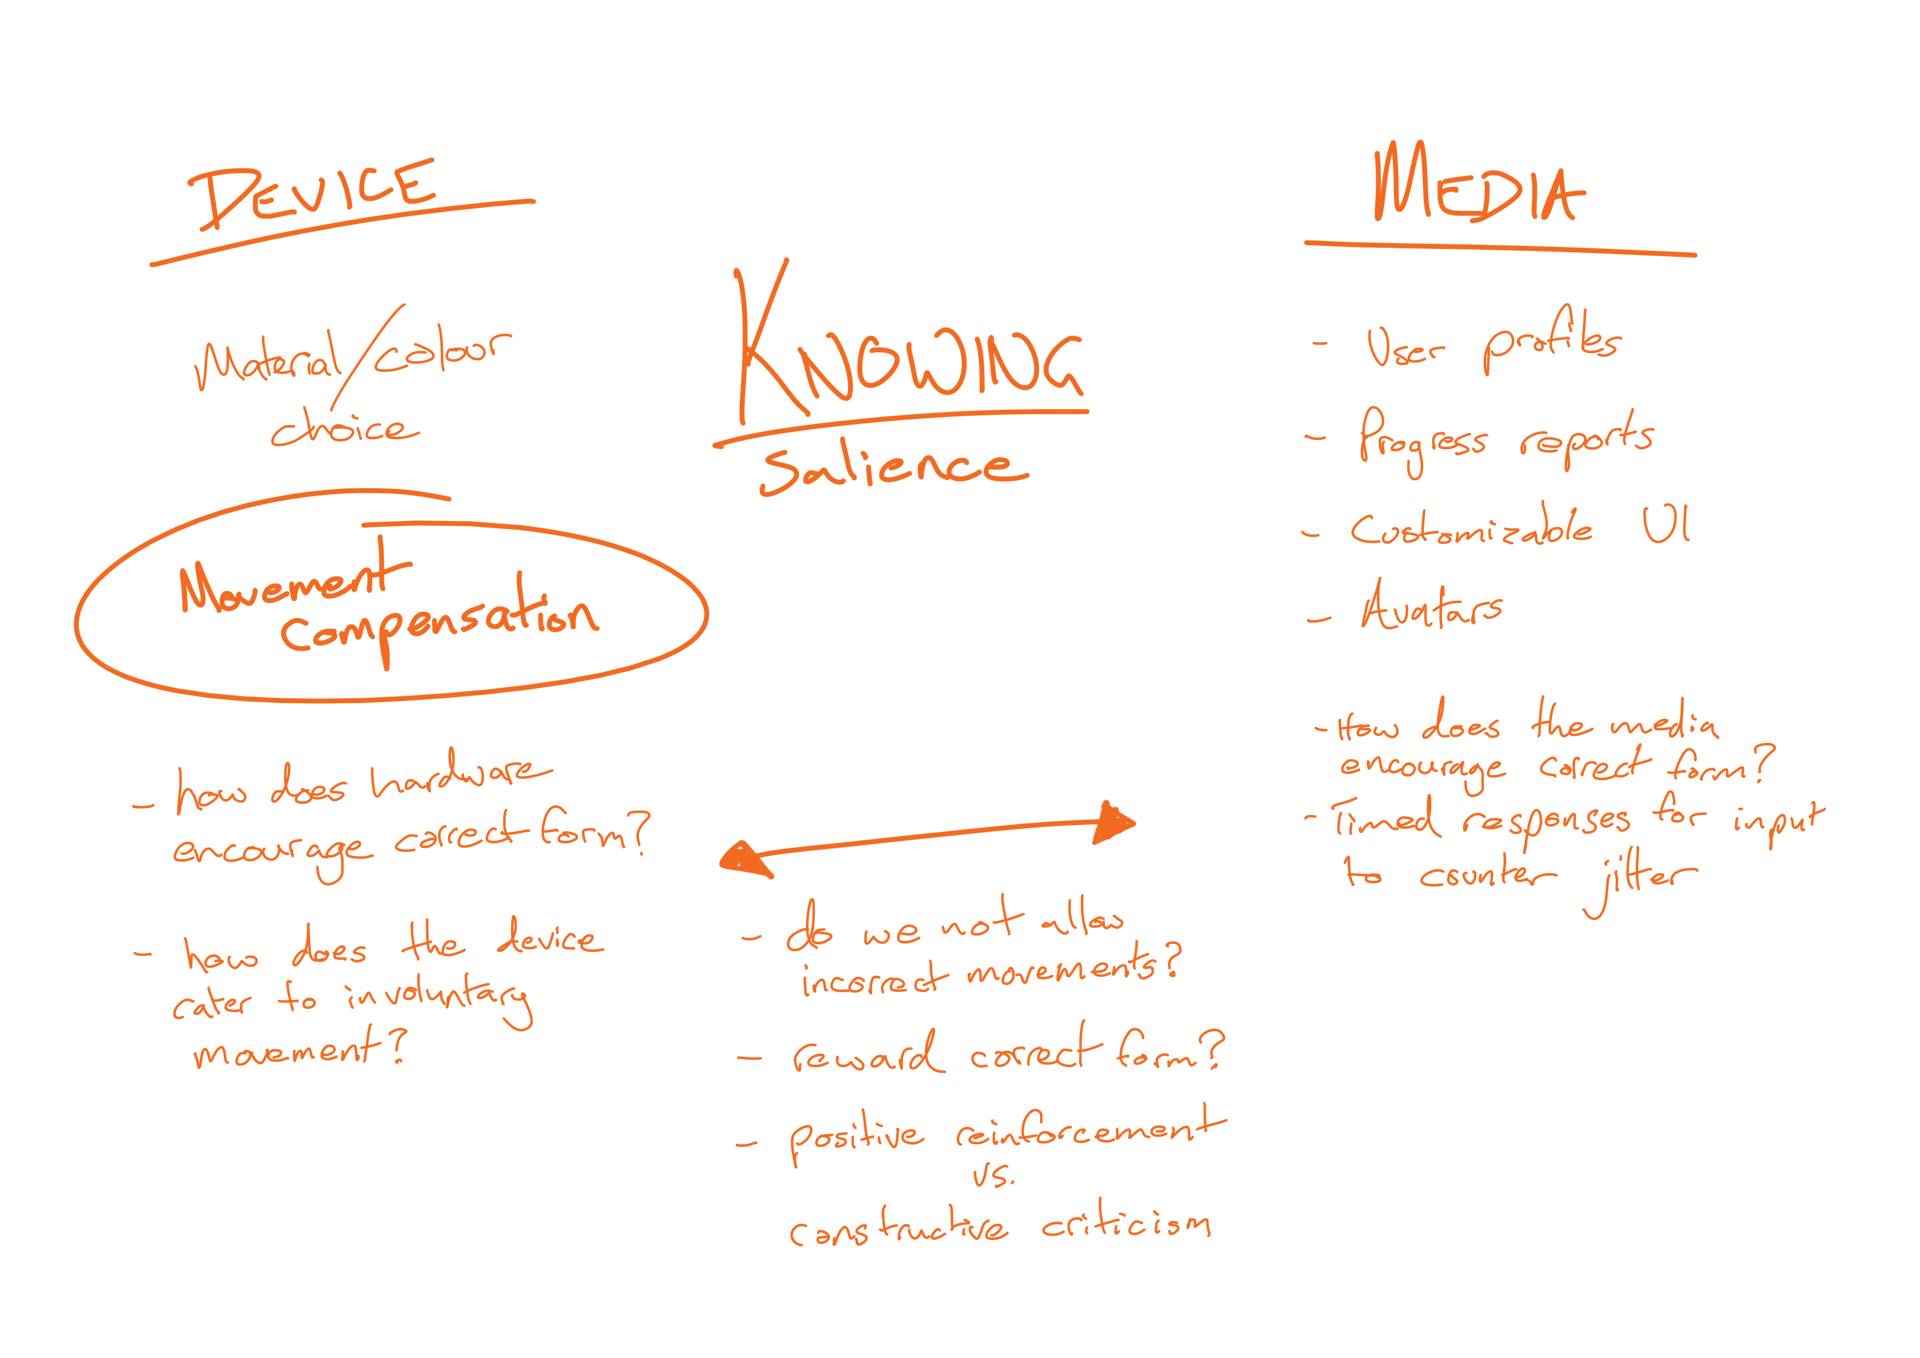 DEVICE
Material/colour
choice
Movement
Compensation
- how does hardware
encourage correct form?
- how does the device
cater to involuntary
movement?
KNOWING
Salience
- do we not allow
incorrect movements?
- reward correct form?
- positive reinforcement
vs.
constructive criticism
MEDIA
- User profiles
- Progress reports
- Customizable UI
- Avatars
- How does the media
encourage correct form?
- Timed responses for input
to counter jitter